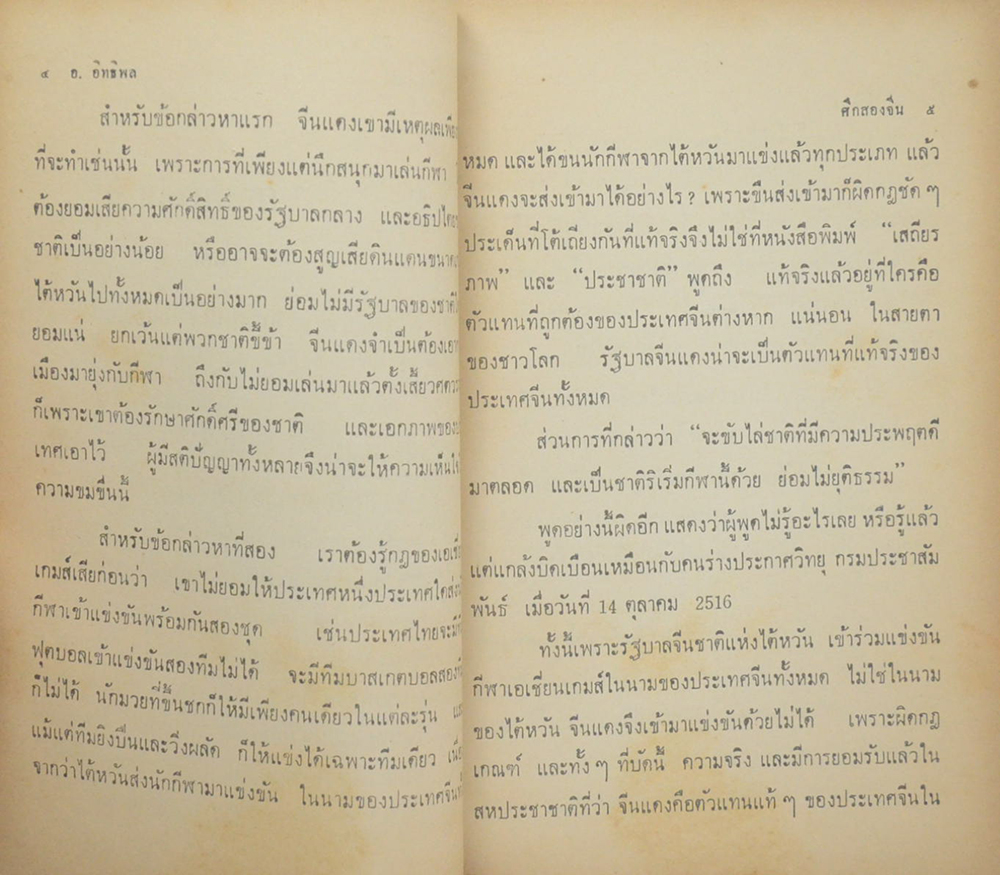 ๔ อ. อิทธิพล
สำหรับข้อกล่าวหาแรก จีนแดงเขามีเหตุผลเพียง
ที่จะทำเช่นนั้น เพราะการที่เพียงแต่นึกสนุกมาเล่นกีฬา
ต้องยอมเสียความศักดิ์สิทธิ์ของรัฐบาลกลาง และอธิปไตย
ชาติเป็นอย่างน้อย หรืออาจจะต้องสูญเสียดินแดนขนาด
ไต้หวันไปทั้งหมดเป็นอย่างมาก ย่อมไม่มีรัฐบาลของชาติ
ยอมแน่ ยกเว้นแต่พวกชาติขี้ข้า จีนแดงจำเป็นต้องเอา
เมืองมายุ่งกับกีฬา ถึงกับไม่ยอมเล่นมาแล้วตั้งเสี้ยวศต
ก็เพราะเขาต้องรักษาศักดิ์ศรีของชาติ และเอกภาพของ
เทศเอาไว้ ผู้มีสติปัญญาทั้งหลายจึงน่าจะให้ความเห็นใจ
ความขมขื่นนี้
สำหรับข้อกล่าวหาที่สอง เราต้องรู้กฎของเอเชี่
เกมส์เสียก่อนว่า เขาไม่ยอมให้ประเทศหนึ่งประเทศใดส่ง
กีฬาเข้าแข่งขันพร้อมกันสองชุด เช่นประเทศไทยจะมี
ฟุตบอลเข้าแข่งขันสองทีมไม่ได้ จะมีทีมบาสเกตบอลสอง
ก็ไม่ได้ นักมวยที่ขึ้นชกก็ให้มีเพียงคนเดียวในแต่ละรุ่น
แม้แต่ทีมยิงปืนและวิ่งผลัด ก็ให้แข่งได้เฉพาะทีมเดียว เนื่อ
จากว่าไต้หวันส่งนักกีฬามาแข่งขัน ในนามของประเทศจีน
ศึกสองจีน ๕
หมด และได้ขนนักกีฬาจากไต้หวันมาแข่งแล้วทุกประเภท แล้ว
จีนแดงจะส่งเข้ามาได้อย่างไร? เพราะขืนส่งเข้ามาก็ผิดกฎชัด ๆ
ประเด็นที่โต้เถียงกันที่แท้จริงจึงไม่ใช่ที่หนังสือพิมพ์ “เสถียร
ภาพ” และ “ประชาชาติ” พูดถึง แท้จริงแล้วอยู่ที่ใครคือ
ตัวแทนที่ถูกต้องของประเทศจีนต่างหาก แน่นอน ในสายตา
ของชาวโลก รัฐบาลจีนแดงน่าจะเป็นตัวแทนที่แท้จริงของ
ประเทศจีนทั้งหมด
ส่วนการที่กล่าวว่า “จะขับไล่ชาติที่มีความประพฤติดี
มาตลอด และเป็นชาติริเริ่มกีฬานี้ด้วย ย่อมไม่ยุติธรรม”
พูดอย่างนี้ผิดอีก แสดงว่าผู้พูดไม่รู้อะไรเลย หรือรู้แล้ว
แต่แกล้งบิดเบือนเหมือนกับคนร่างประกาศวิทยุ กรมประชาสัม
พันธ์ เมื่อวันที่ 14 ตุลาคม 2516
ทั้งนี้เพราะรัฐบาลจีนชาติแห่งไต้หวัน เข้าร่วมแข่งขัน
กีฬาเอเชี่ยนเกมส์ในนามของประเทศจีนทั้งหมด ไม่ใช่ในนาม
ของไต้หวัน จีนแดงจึงเข้ามาแข่งขันด้วยไม่ได้ เพราะผิดกฎ
เกณฑ์ และทั้ง ๆ ที่บัดนี้ ความจริง และมีการยอมรับแล้วใน
สหประชาชาติที่ว่า จีนแดงคือตัวแทนแท้ ๆ ของประเทศจีนใน